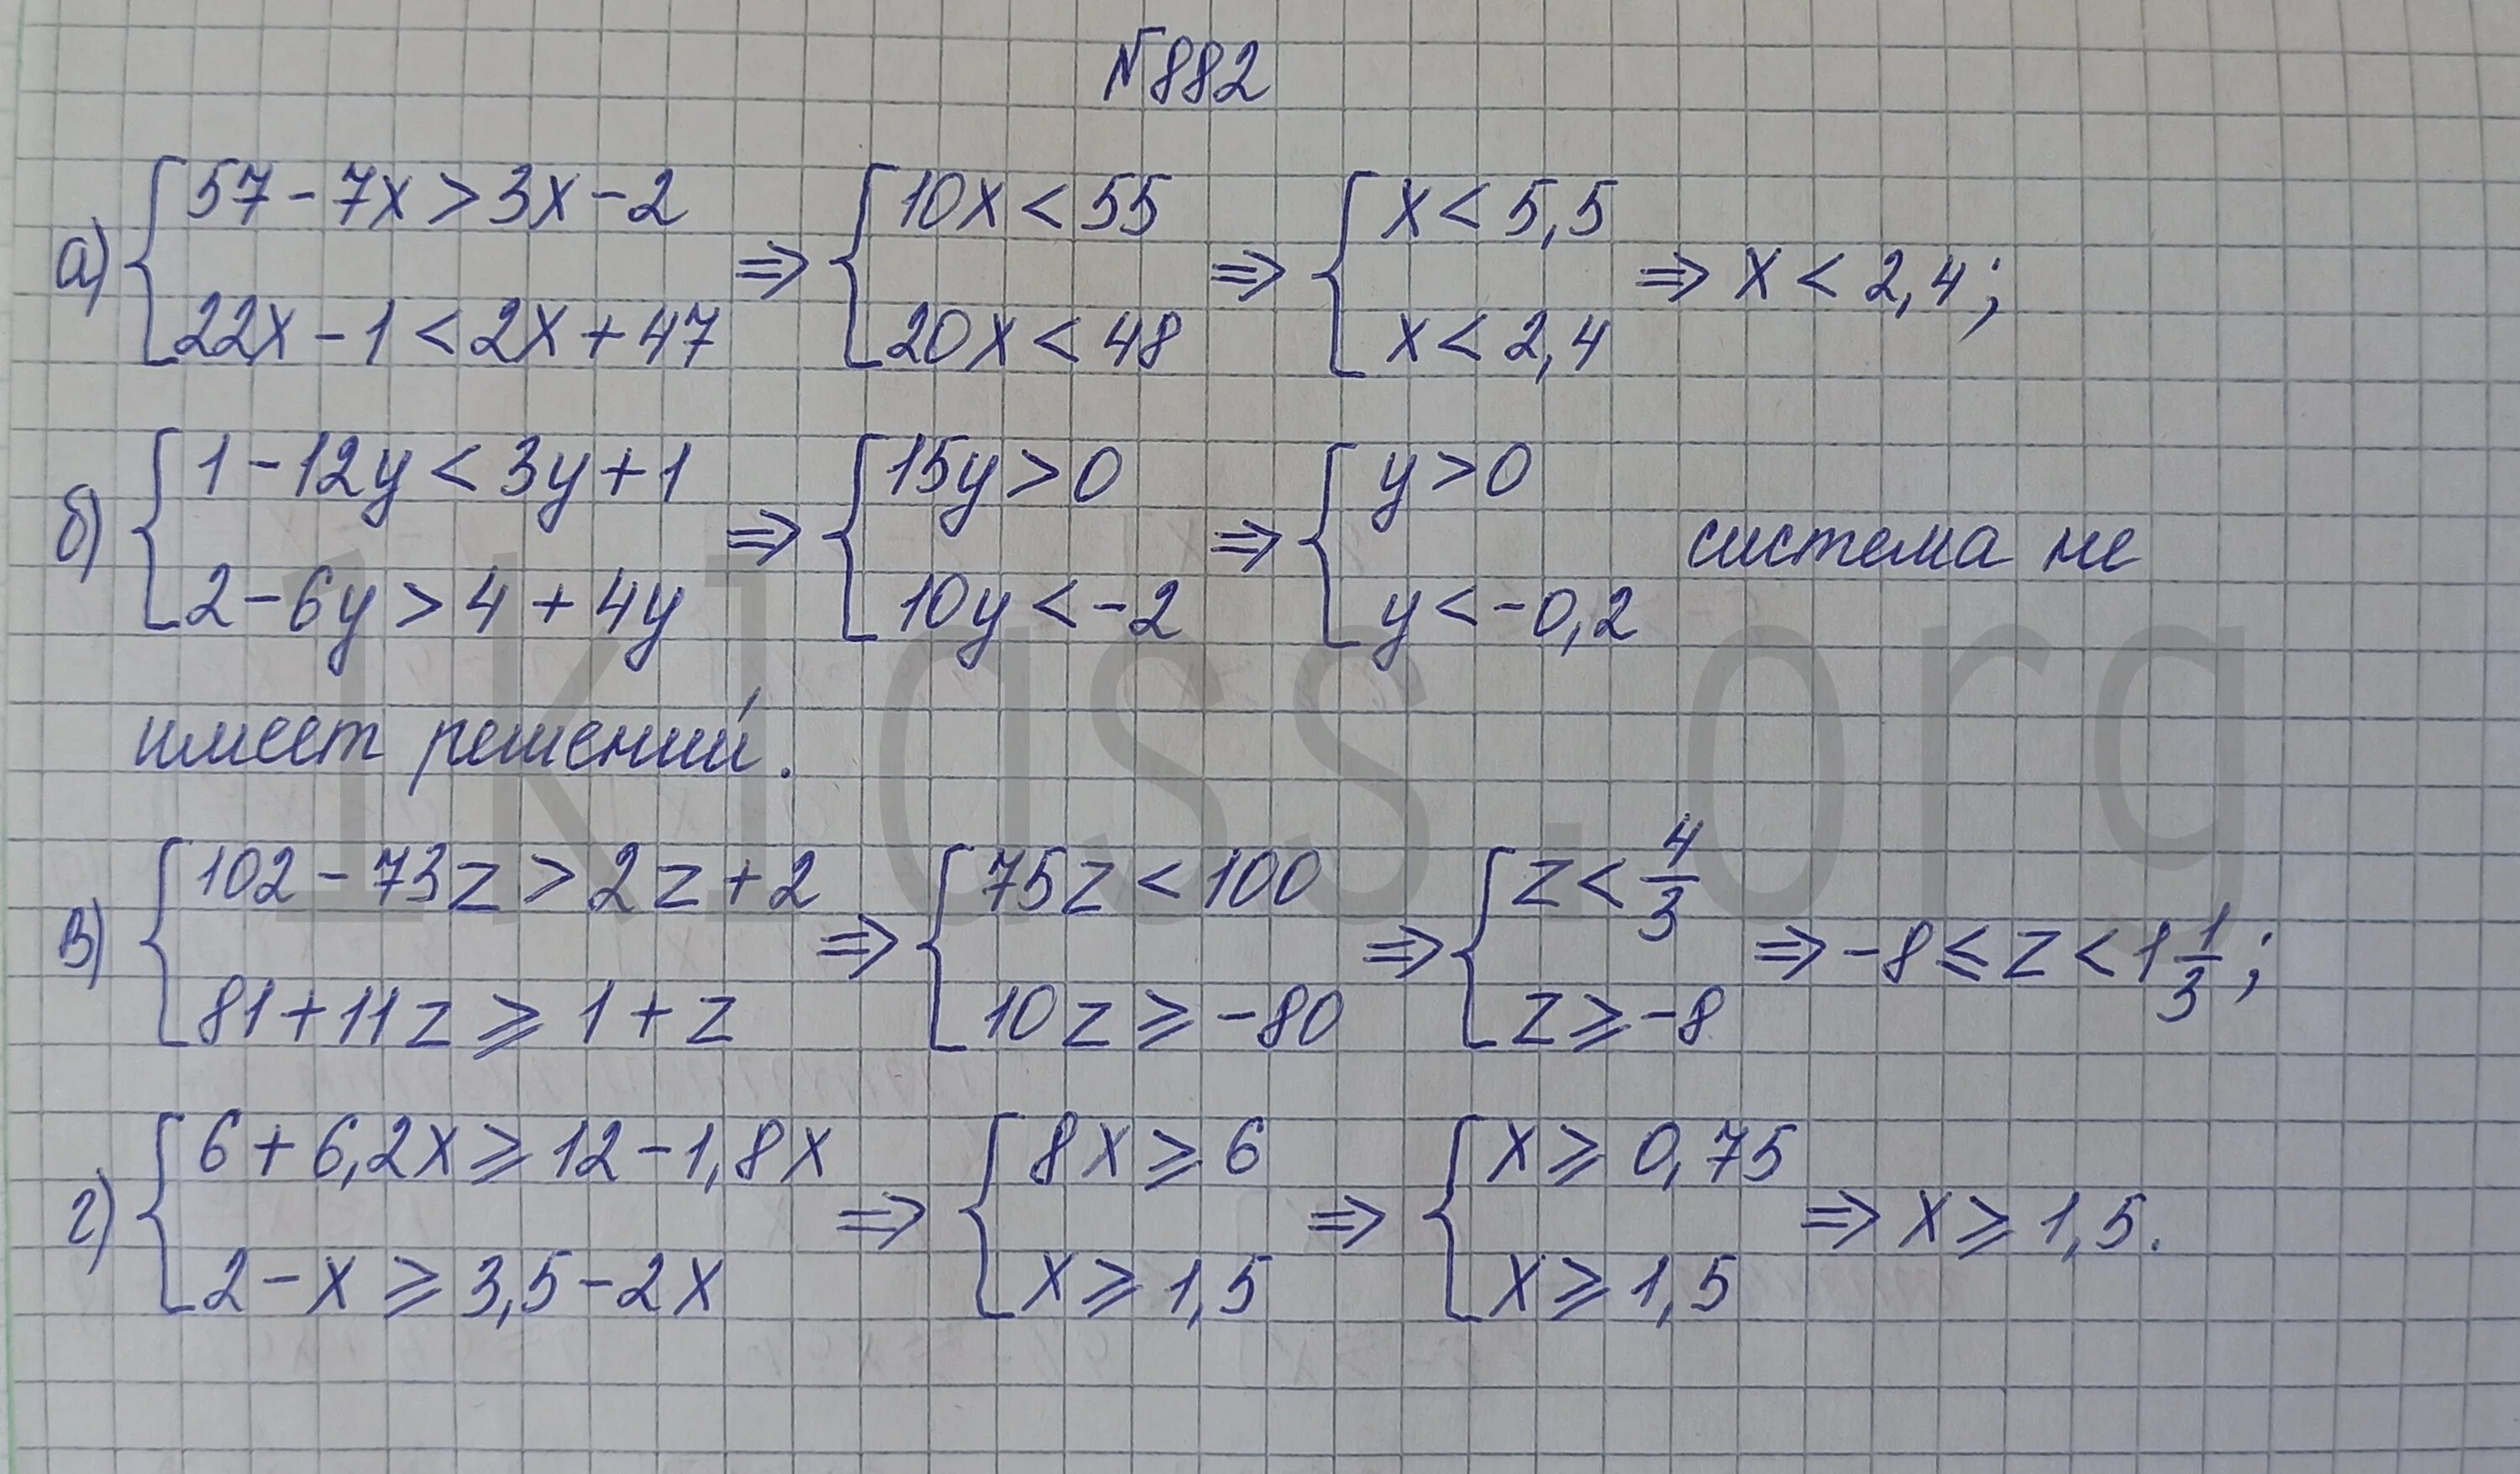 №882
а) { 57 - 7x > 3x - 2 ; 22x - 1 < 2x + 47 ⇒ { 10x < 55 ; 20x < 48 ⇒ { x < 5,5 ; x < 2,4 ⇒ x < 2,4;
б) { 1 - 12y < 3y + 1 ; 2 - 6y > 4 + 4y ⇒ { 15y > 0 ; 10y < -2 ⇒ { y > 0 ; y < -0,2 система не
имеет решений.
в) { 102 - 73z > 2z + 2 ; 81 + 11z ⩾ 1 + z ⇒ { 75z < 100 ; 10z ⩾ -80 ⇒ { z < 4/3 ; z ⩾ -8 ⇒ -8 ⩽ z < 1 1/3;
г) { 6 + 6,2x ⩾ 12 - 1,8x ; 2 - x ⩾ 3,5 - 2x ⇒ { 8x ⩾ 6 ; x ⩾ 1,5 ⇒ { x ⩾ 0,75 ; x ⩾ 1,5 ⇒ x ⩾ 1,5.
1klass.org